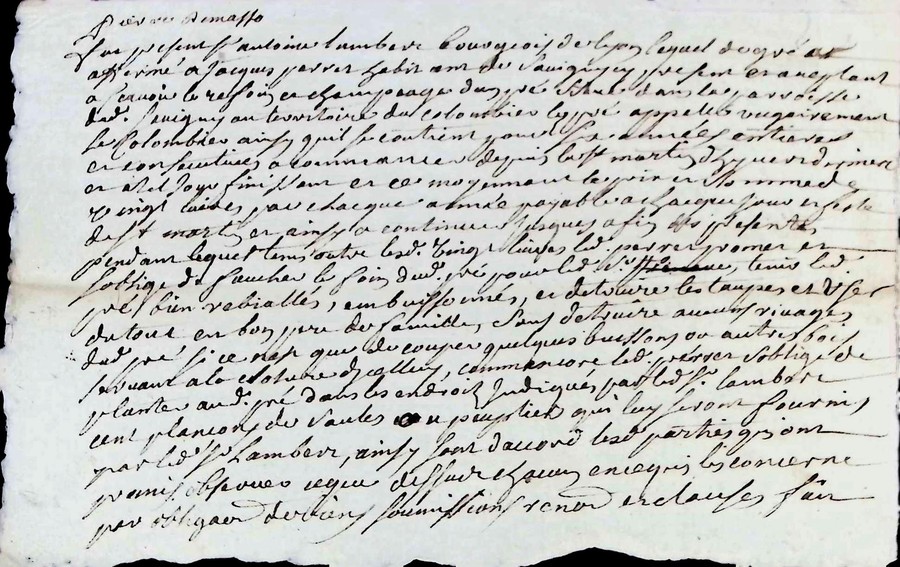 fut present sr antoine lambert bourgeois de lyon lequel de gré a
affermé a Jacques perret habitant de Savigny present et acceptant
a scavoir le re foin et champeage du pré Situé dans la parroisse
dud. Savigny au territoire du colombier le pré appellé vugairement
Le Colombier ainsy quil se contient pour six années entieres
et consecutives a commancer depuis la st martin d'hyver derniere
et a tel Jour finissant et ce moyennant le prix et Somme de
vingt livres par chacque année payable a chacque jour et feste
de st martin et ainsy a continuer Jusques a fin des presentes
pendant lequel tems outre lesd. vingt livres led. perret promet et
soblige de faucher le foin dud. pré pour led. sr. tenir led.
pré bien rebiallés, embuissonnés, et detruire les taupes et User
du tout en bon pere de famille, Sans detruire aucuns rivages
dud. pré si ce nest que de couper quelques buissons ou autres bois
servant a la cloture dycelluy, comme encore led. perret soblige de
planter aud. pré dans les endroits Indiqués par led. sr. lambert
cent plançons de Saules ou peuplier qui luy seront fournis
par led. sr Lambert, ainsy sont daccord lesd. parties qui ont
promis observer ce que dessus chacun en ce qui les concerne
par obligaon de biens soumissions renon et clauses fait